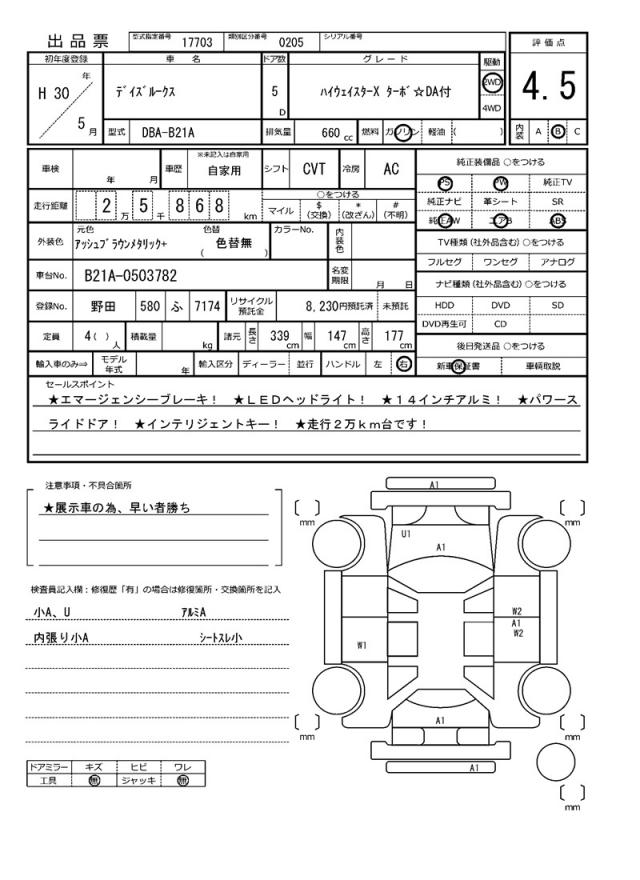 出品票 型式指定番号 17703 類別区分番号 0205 シリアル番号
評価点
4.5
内装 A B C
初年度登録 車名 ドア数 グレード 駆動
H 30 年 5 月
ﾃﾞｲｽﾞﾙｰｸｽ 5 D ﾊｲｳｪｲｽﾀｰX ﾀｰﾎﾞ☆DA付 2WD
4WD
型式 DBA-B21A 排気量 660 cc 燃料 ガソリン 軽油 ( )
車検 年 月 車歴 ※未記入は自家用 自家用 シフト CVT 冷房 AC
走行距離 2 万 5 千 8 6 8 km ○をつける
マイル $(交換) *(改ざん) #(不明)
外装色 元色 ｱｯｼｭﾌﾞﾗｳﾝﾒﾀﾘｯｸ+ 色替 ( 色替無 ) カラーNo. 内装色
車台No. B21A-0503782 名変期限 月 日
登録No. 野田 580 ふ 7174 リサイクル預託金 8,230円預託済 未預託
定員 4( ) 人 積載量 kg 諸元 長さ 339 cm 幅 147 cm 高さ 177 cm
輸入車のみ⇒ モデル年式 年 輸入区分 ディーラー 並行 ハンドル 左 右
純正装備品 ○をつける
PS PW 純正TV
純正ナビ 革シート SR
純正AW エアB ABS
TV種類 (社外品含む) ○をつける
フルセグ ワンセグ アナログ
ナビ種類 (社外品含む) ○をつける
HDD DVD SD
DVD再生可 CD
後日発送品 ○をつける
新車保証書 車輌取説
セールスポイント
★エマージェンシーブレーキ！ ★ＬＥＤヘッドライト！ ★１４インチアルミ！ ★パワース
ライドドア！ ★インテリジェントキー！ ★走行２万ｋｍ台です！
注意事項・不具合箇所
★展示車の為、早い者勝ち
検査員記入欄：修復歴「有」の場合は修復箇所・交換箇所を記入
小A、U ｱﾙﾐA
内張り小A ｼｰﾄｽﾚ小
ドアミラー キズ ヒビ ワレ
工具 無 ジャッキ 無
A1
[ ] mm
[ ] mm
U1
A1
W2
A1
W2
W1
A1
[ ] mm
[ ] mm
A1
[ ] mm